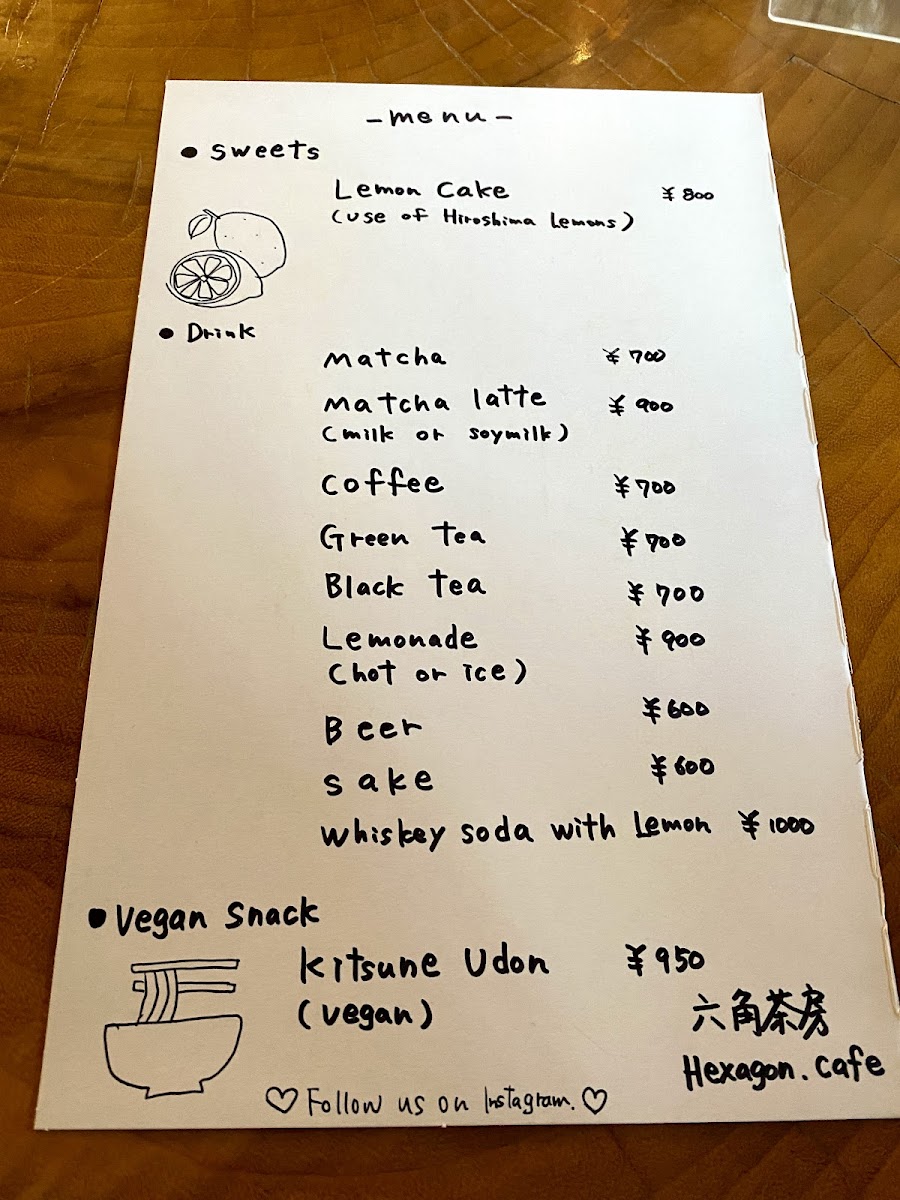 - menu -
• Sweets
Lemon Cake ¥800
(use of Hiroshima Lemons)
• Drink
Matcha ¥700
Matcha latte ¥900
(milk or soymilk)
Coffee ¥700
Green Tea ¥700
Black Tea ¥700
Lemonade ¥900
(hot or ice)
Beer ¥600
Sake ¥600
Whiskey soda with Lemon ¥1000
• Vegan Snack
Kitsune Udon ¥950
(vegan)
六角茶房
Hexagon.cafe
♡ Follow us on Instagram. ♡